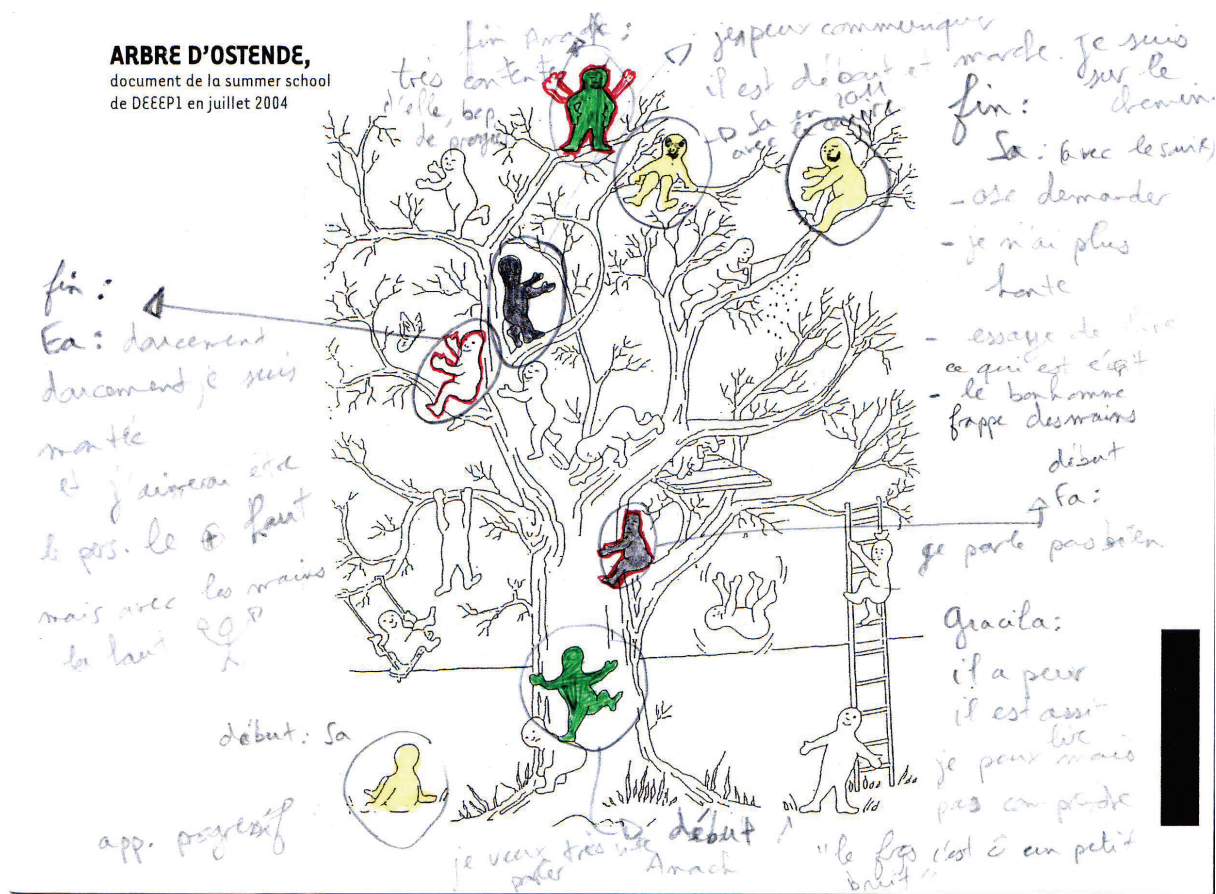 ARBRE D'OSTENDE,
document de la summer school
de DEEEP1 en juillet 2004
fin Anach :
très contente
d'elle, bcp
de progrès
je peux communiquer
il est debout et marche. Je suis
sur le
chemin.
Sa en 2011
avec
fin :
Sa : (avec le
- ose demander
- je n'ai plus
honte
- essaye de lire
ce qui est écrit
- le bonhomme
frappe des mains
début
Fa :
je parle pas bien
Gracila :
il a peur
il est assit
lire
je peux mais
pas comprendre
"le frçs c'est c un petit
bruit"
fin :
Ea : doucement
doucement je suis
montée
et j'aimerai être
le pers. le + haut
mais avec les mains
là haut
début : Sa
app. progressif
début
Anach
je veux très vite
parler